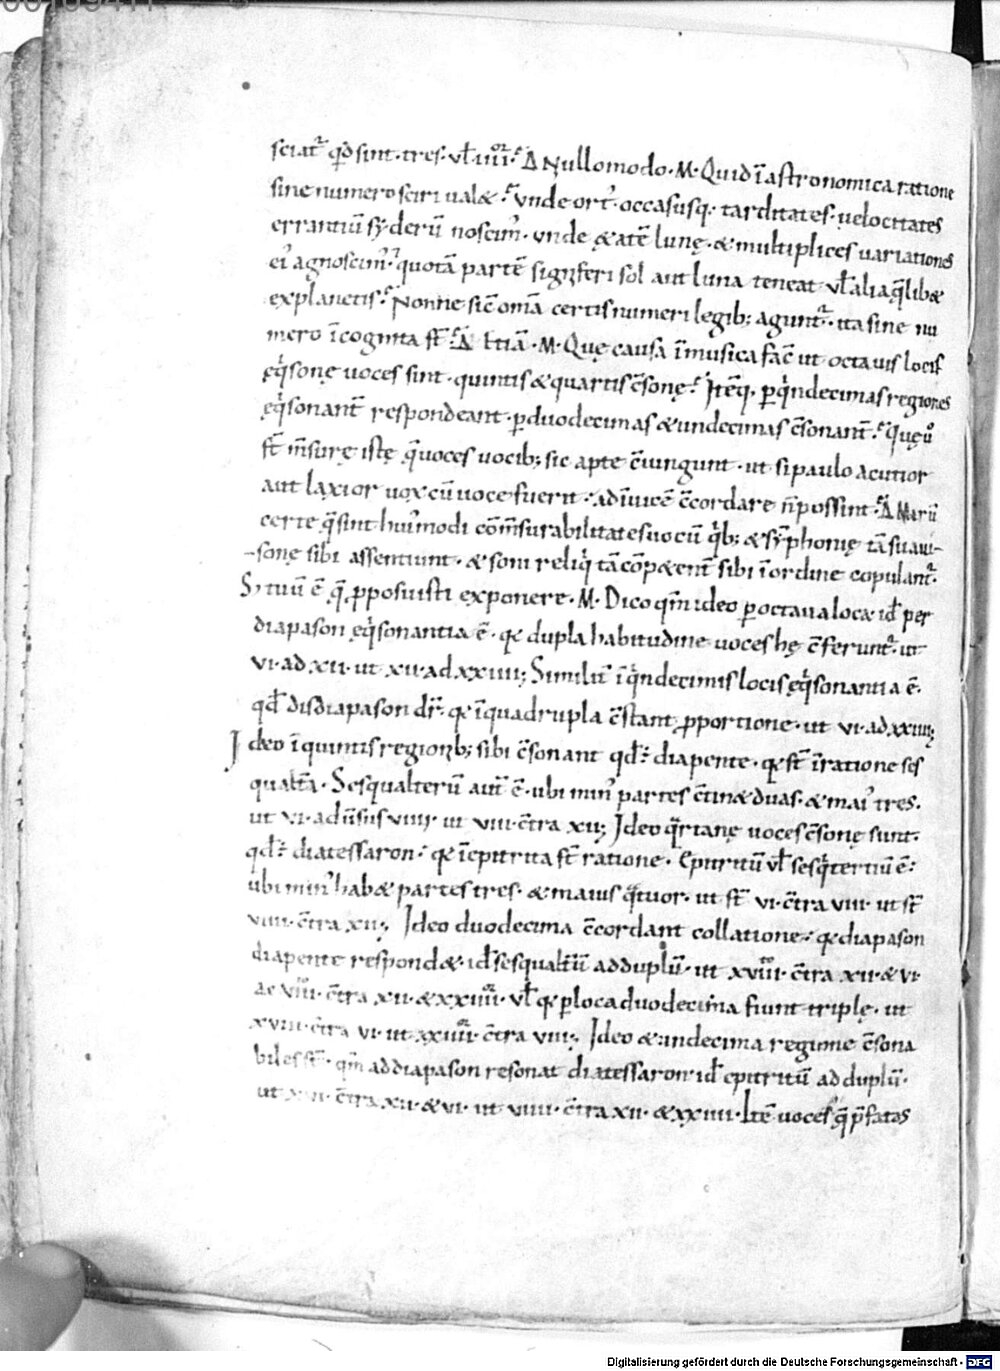 sciat᷑ qđ sint · tres · ul̄ · iiii᷑ Δ Nullo modo · M · Quid ī astronomica ratione
sine numero sciri ualę · Vnde ort᷑ · occasusq · tarditates · uelocitates
errantiū syderū noscim᷑ · unde & atē lunę · & multiplices uariationes
ei᷑ agnoscim᷑ · quotā partē signiferi sol aut luna teneat · ul̄ alia q̄libæ
ex planetis · Nonne sic̄ om̄a certis numeri legib; agunt᷑ · ita sine nu
mero īcognita st̄ · Δ Etiā · M · Quę causa ī musica fac̄ ut octauis locis
ęq̇sonę uoces sint · quintis & quartis c̄sonę · Itēq · p q̇ndecimas regiones
ęq̇sonant̄ respondeant · p duodecimas & undecimas c̄sonant̄ · Quę ů
st̄ m̄surę istę q̄ uoces uocib; sic apte c̄iungunt · ut si paulo acutior
aut laxior uox cū uoce fuerit · ad īuicē c̄cordare n̄ possint · Δ Mariī
certe q̄ sint hui᷑modi cōm̄surabilitates uocū q̇b; & sȳphonię tā suaui-
-sonę sibi assentiunt · & soni reliq̇ tā cōp&ent̄ sibi ī ordine copulant᷑ ·
Si tuū ē q̄ pposuisti exponere · M · Dico qm̄ ideo p octaua loca · id̄ per
diapason ęq̇sonantia ē · qa dupla habitudine uoces hę c̄ferunt᷑ · ut
VI · ad XII · ut XII · ad XXIIII ; Similit̄ ī q̇ndecimis locis ęq̇sonantia ē ·
qđ disdiapason dr̄ · qa ī quadrupla c̄stant pportione · ut VI · ad XXIIII ;
Ideo ī quintis regionib; sibi c̄sonant qđ ÷ diapente · qa st̄ ī ratione ses
qualt̄a · Sesqualterū aut̄ ē · ubi min᷑ partes c̄tin& duas · & mai᷑ tres ·
ut VI · aduīsus VIIII · ut VIII · c̄tra XII ; Ideo q̇rtanę uoces c̄sonę sunt ·
qđ ÷ diatessaron · qa ī epitrita st̄ ratione · Epitritū ul̄ sesq̇tertiū ē ·
ubi min᷑ hab& partes tres · & maius q̄tuor · ut st̄ VI · c̄tra VIII · ut st̄
VIIII · c̄tra XII ; Ideo duodecima c̄cordant collatione · qa diapason
diapente respond& · id̄ sesqualt̄ū ad duplū · ut XVIII · c̄tra XII · & VI ·
ac VIIII · c̄tra XII · & XXIIII · ul̄ qa p loca duodecima fiunt triplę · ut
XVIII · c̄tra VI · ut XXIIII · c̄tra VIII ; Ideo & undecima regione c̄sona
biles st̄ · qm̄ ad diapason resonat diatessaron · id̄ epitritū ad duplū ·
ut c̄tra XII · & VI · ut VIIII · c̄tra XII · & XXIIII · Itē uoces q̄ p̄fatas
Digitalisierung gefördert durch die Deutsche Forschungsgemeinschaft - DFG